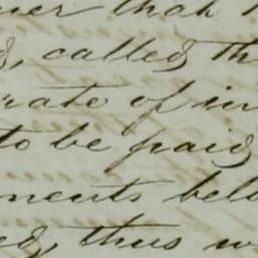 that
called th
rate of in
to be paid
ments belo
thus w